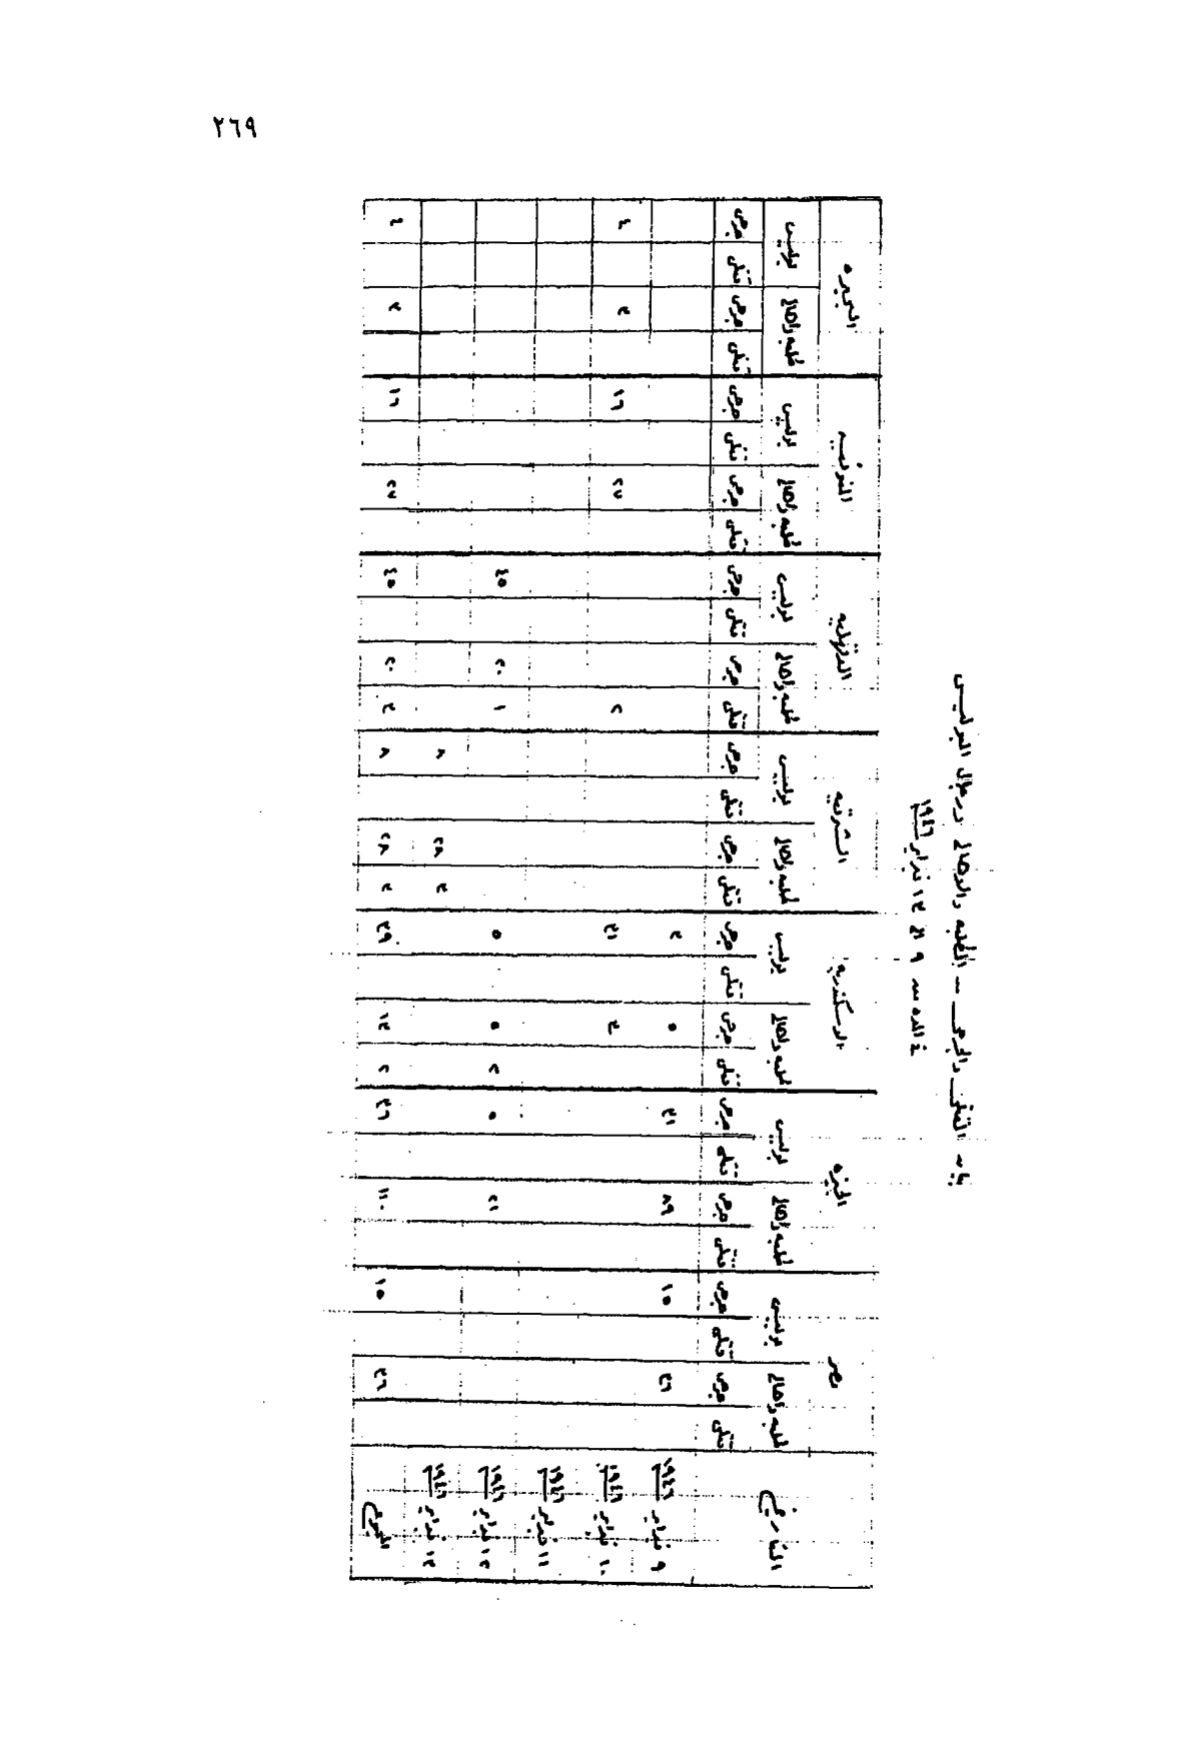 ٢٦٩
بيان القتلى والجرحى – الطلبه والاهالى ورجال البوليس
فى المده من ٩ الى ١٣ فبراير ١٩٤٦
التاريخ مصر الجيزه الاسكندريه الشرقيه الدقهليه المنوفيه البحيره
طلبه واهالى بوليس طلبه واهالى بوليس طلبه واهالى بوليس طلبه واهالى بوليس طلبه واهالى بوليس طلبه واهالى بوليس طلبه واهالى بوليس
قتلى جرحى قتلى جرحى قتلى جرحى قتلى جرحى قتلى جرحى قتلى جرحى قتلى جرحى قتلى جرحى قتلى جرحى قتلى جرحى قتلى جرحى قتلى جرحى قتلى جرحى قتلى جرحى
٩ فبراير ١٩٤٦ ٣٦ ١٥ ٨٩ ٣١ ٥ ٣
١٠ فبراير ١٩٤٦ ٣ ٣١ ٢ ٢٧ ١٦ ٣ ٤
١١ فبراير ١٩٤٦
١٢ فبراير ١٩٤٦ ٢١ ٥ ٢ ٥ ٥ ١ ٢٠ ٤٥
١٣ فبراير ١٩٤٦ ٣ ٢٨ ٨
المجموع ٣٦ ١٥ ١١٠ ٣٦ ٢ ١٣ ٣٩ ٣ ٢٨ ٨ ٣ ٢٠ ٤٥ ٢٧ ١٦ ٣ ٤